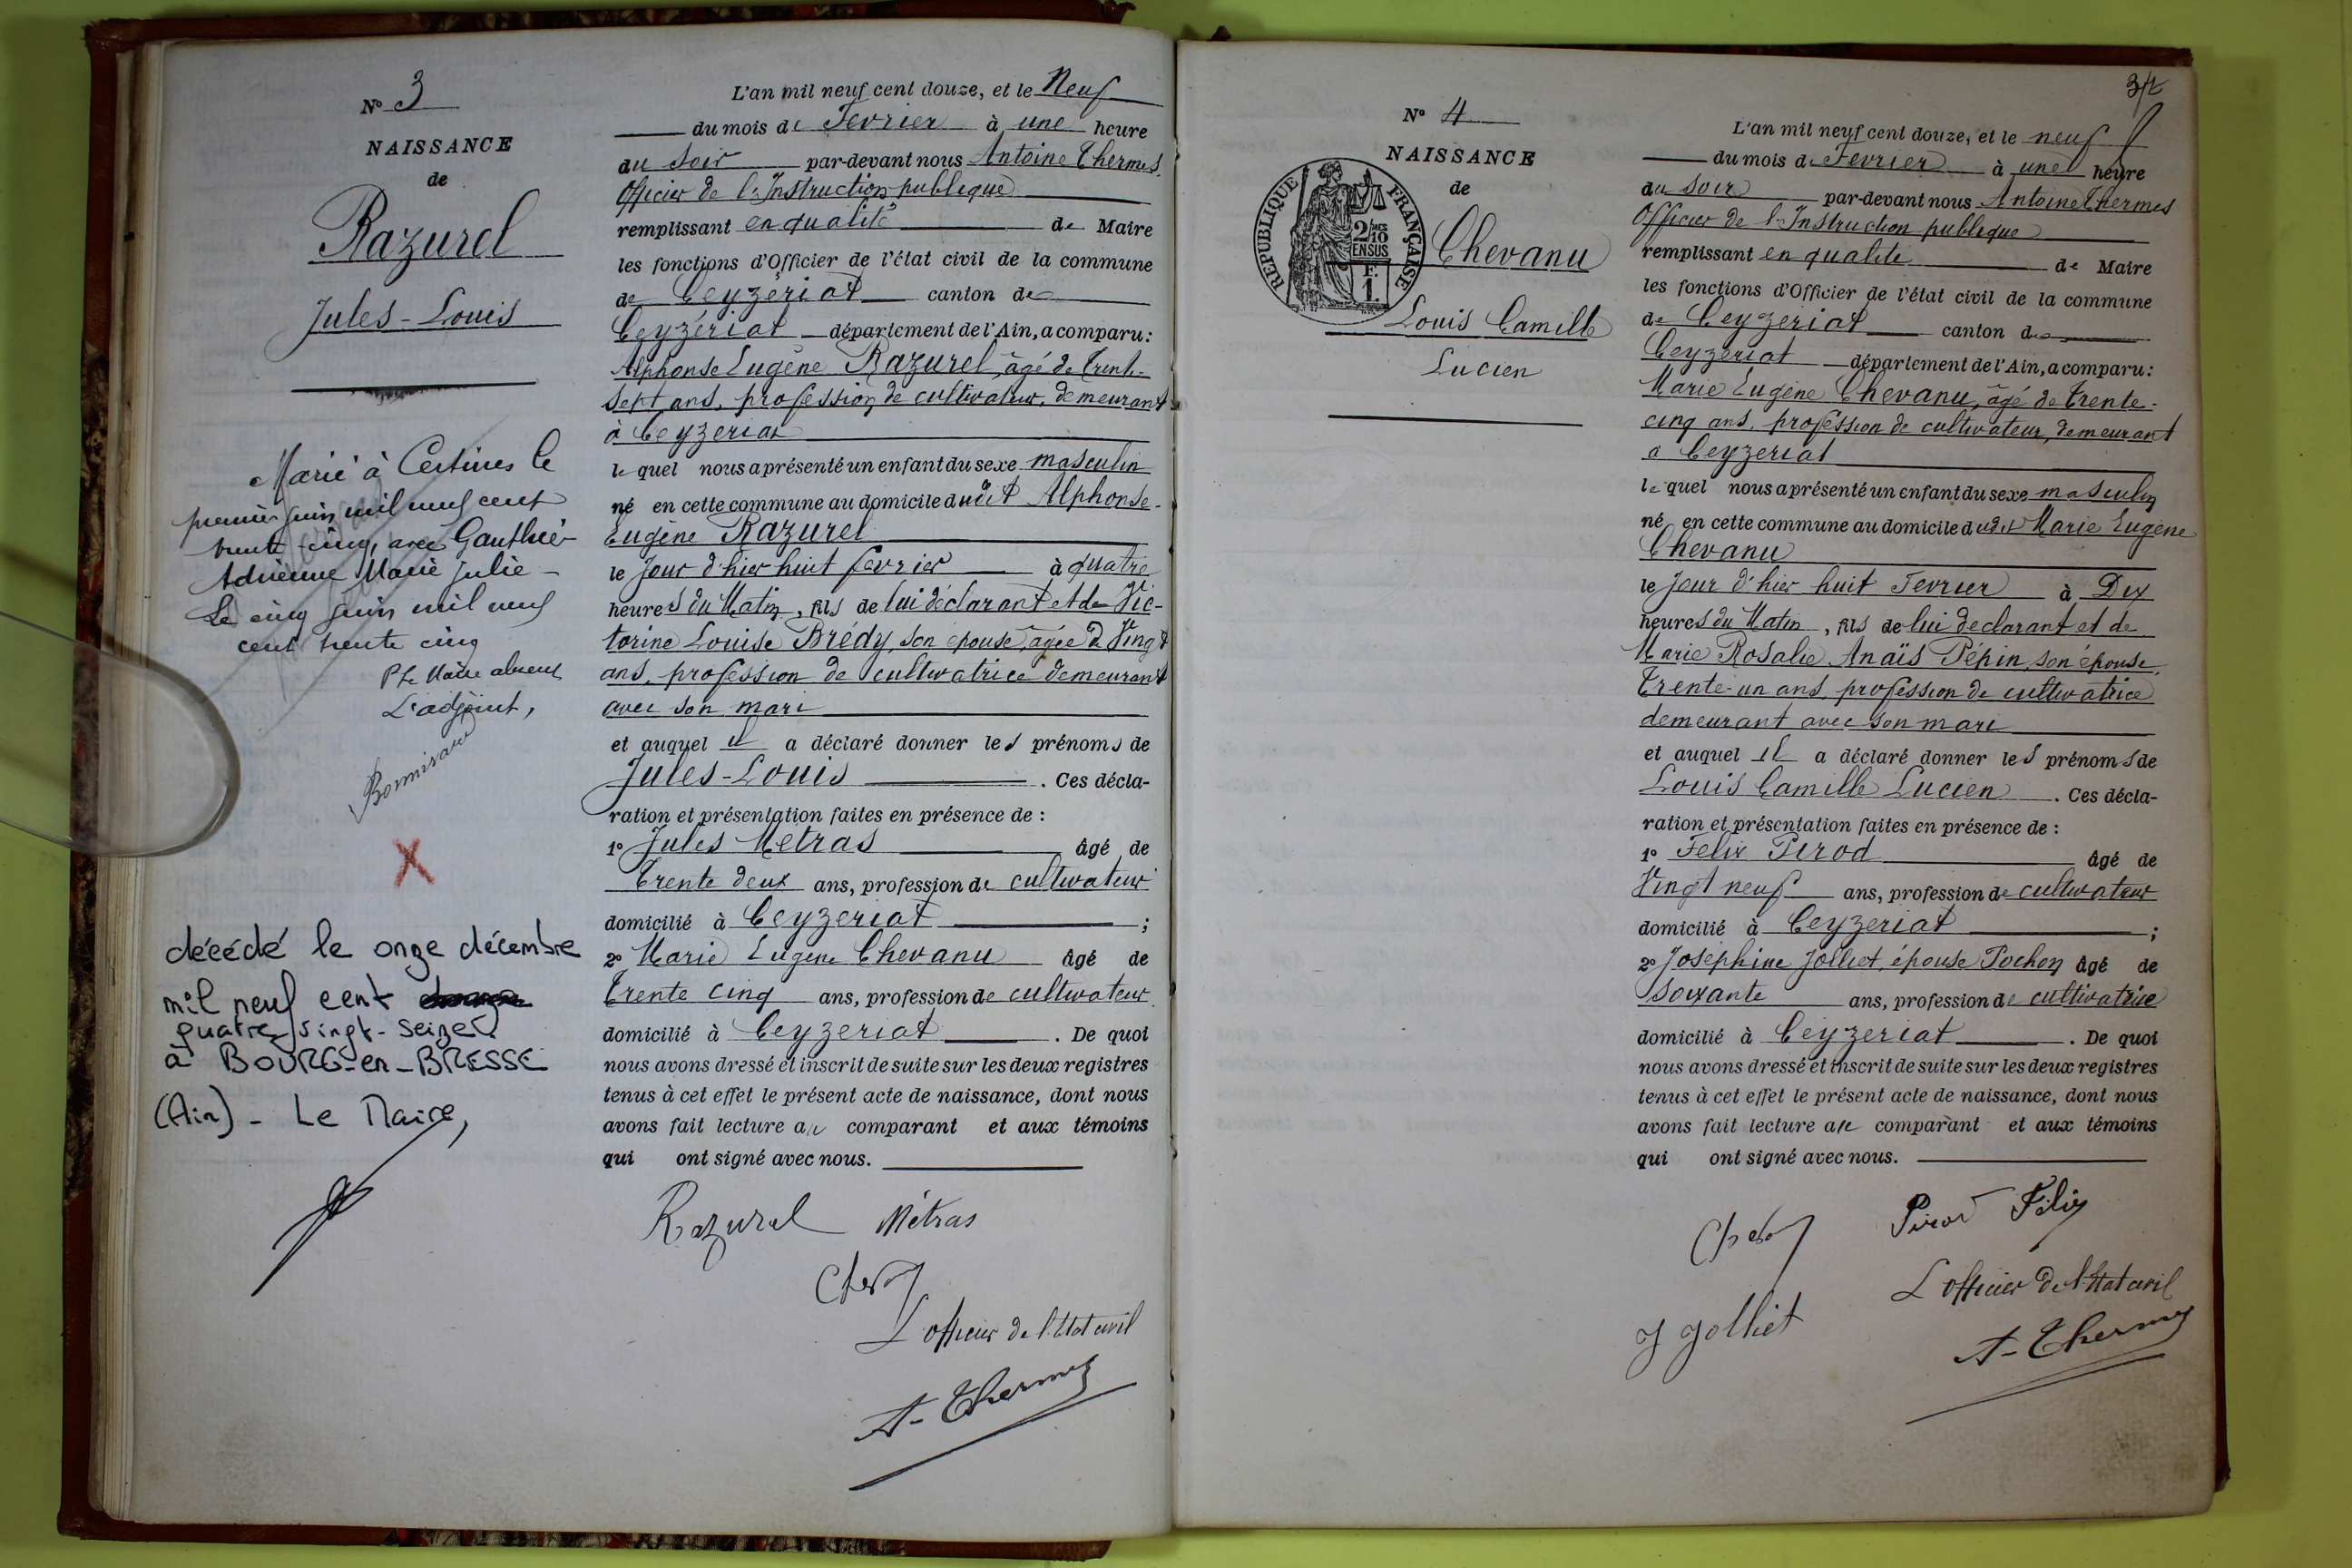 N° 3
NAISSANCE
de
Razurel
Jules-Louis
Marié à Certines le
premier juin mil neuf cent
trente-cinq, avec Gauthier
Adrienne Marie Julie -
Le cinq juin mil neuf
cent trente cinq
Pr le Maire absent
L'adjoint,
décédé le onze décembre
mil neuf cent
quatre vingt-seize
à BOURG-en-BRESSE
(Ain) - Le Maire,
L'an mil neuf cent douze, et le Neuf
du mois de Fevrier à une heure
du Soir par-devant nous Antoine Thermes.
Officier de l'Instruction publique
remplissant en qualité de Maire
les fonctions d'Officier de l'état civil de la commune
de Ceyzériat canton de
Ceyzériat département de l'Ain, a comparu:
Alphonse Eugène Razurel, âgé de Trente-
Sept ans, profession de cultivateur, demeurant
à Ceyzeriat
le quel nous a présenté un enfant du sexe masculin
né en cette commune au domicile dudit Alphonse-
Eugène Razurel
le Jour d'hier huit fevrier à quatre
heures du Matin, fils de lui déclarant et de Vic-
torine Louise Brédy, son épouse, âgée de Vingt
ans, profession de cultivatrice demeurant
avec son mari
et auquel il a déclaré donner les prénoms de
Jules-Louis. Ces décla-
ration et présentation faites en présence de :
1° Jules Metras âgé de
Trente deux ans, profession de cultivateur
domicilié à Ceyzeriat ;
2° Marie Eugène Chevanu âgé de
Trente cinq ans, profession de cultivateur
domicilié à Ceyzeriat. De quoi
nous avons dressé et inscrit de suite sur les deux registres
tenus à cet effet le présent acte de naissance, dont nous
avons fait lecture au comparant et aux témoins
qui ont signé avec nous.
Razurel Métras
L'officier de l'Etat civil
A-Thermes
34
N° 4
NAISSANCE
de
REPUBLIQUE FRANÇAISE
2/10
EN SUS
F.
1.
Chevanu
Louis Camille
Lucien
L'an mil neuf cent douze, et le neuf
du mois de Fevrier à une heure
du soir par-devant nous Antoine Thermes
Officier de l'Instruction publique
remplissant en qualité de Maire
les fonctions d'Officier de l'état civil de la commune
de Ceyzeriat canton de
Ceyzeriat département de l'Ain, a comparu:
Marie Eugène Chevanu, âgé de Trente-
cinq ans, profession de cultivateur, demeurant
à Ceyzeriat
le quel nous a présenté un enfant du sexe masculin
né en cette commune au domicile dudit Marie Eugène
Chevanu
le Jour d'hier huit Fevrier à Dix
heures du Matin, fils de lui declarant et de
Marie Rosalie Anaïs Pépin, son épouse,
Trente-un ans, profession de cultivatrice
demeurant avec son mari
et auquel il a déclaré donner les prénoms de
Louis Camille Lucien. Ces décla-
ration et présentation faites en présence de :
1° Felix Pirod âgé de
Vingt neuf ans, profession de cultivateur
domicilié à Ceyzeriat ;
2° Joséphine Jolliet, épouse Pochon âgé de
Soixante ans, profession de cultivatrice
domicilié à Ceyzeriat. De quoi
nous avons dressé et inscrit de suite sur les deux registres
tenus à cet effet le présent acte de naissance, dont nous
avons fait lecture au comparant et aux témoins
qui ont signé avec nous.
Pirod Félix
L'officier de l'Etat civil
J Jolliet
A-Thermes